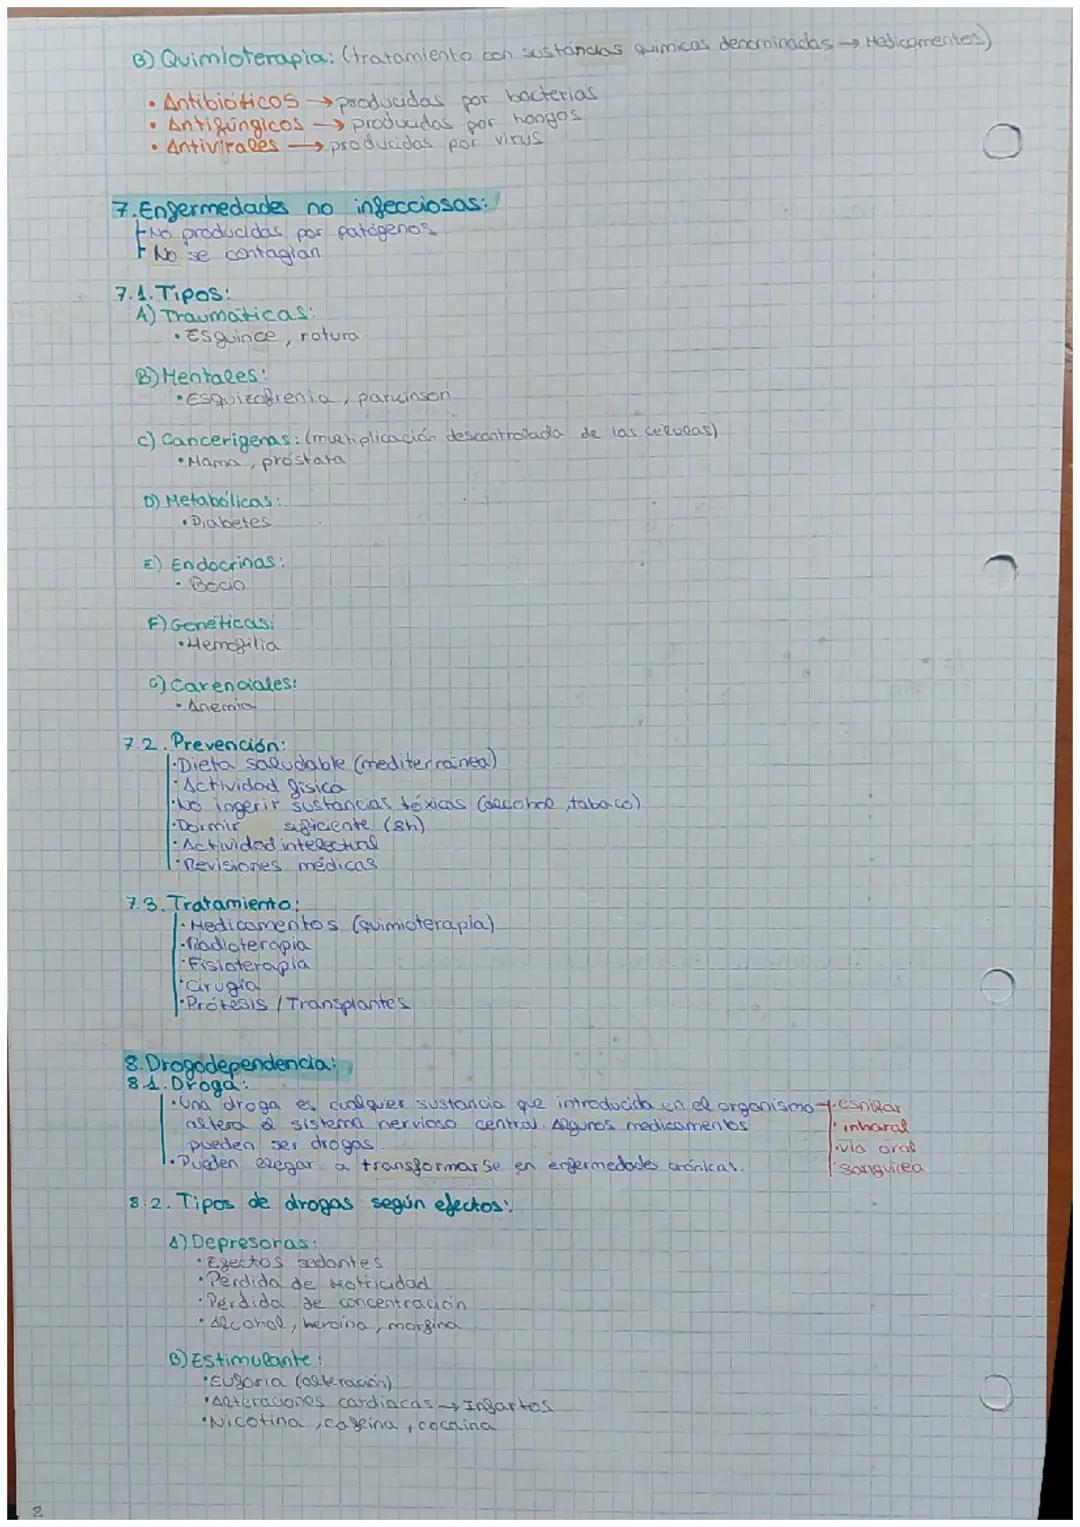 B) Quimioterapia: (tratamiento con sustáncias químicas denominadas → Medicamentos)
• Antibióticos → producidas por bacterias
• Antifúngicos → producidas por hongos
• Antivirales → producidas por virus
7. Enfermedades no infecciosas:
No producidas por patógenos
No se contagian
7.1. Tipos:
A) Traumáticas:
• Esguince, rotura
B) Mentales:
• Esquizofrenia, parkinson
C) Cancerígenas: (multiplicación descontrolada de las células)
• Mama, próstata
D) Metabólicas:
• Diabetes
E) Endocrinas:
• Bocio
F) Genéticas:
• Hemofilia
G) Carenciales:
• Anemia
7.2. Prevención:
• Dieta saludable (mediterránea)
• Actividad física
• No ingerir sustancias tóxicas (alcohol, tabaco)
• Dormir suficiente (8h)
• Actividad intelectual
• Revisiones médicas
7.3. Tratamiento:
• Medicamentos (quimioterapia)
• Radioterapia
• Fisioterapia
• Cirugía
• Prótesis / Transplantes
8. Drogodependencia:
8.1. Droga:
• Una droga es cualquier sustancia que introducida en el organismo → • esnifar
altera el sistema nervioso central. Algunos medicamentos • inharal
pueden ser drogas. • vía oral
• Pueden llegar a transformarse en enfermedades crónicas. • sanguírea
8.2. Tipos de drogas según efectos:
A) Depresoras:
• Efectos sedantes
• Pérdida de Motricidad
• Pérdida de concentración
• Alcohol, heroína, morfina
B) Estimulante:
• Euforia (alteración)
• Alteraciones cardiacas → Infartos
• Nicotina, cafeína, cocaína
2